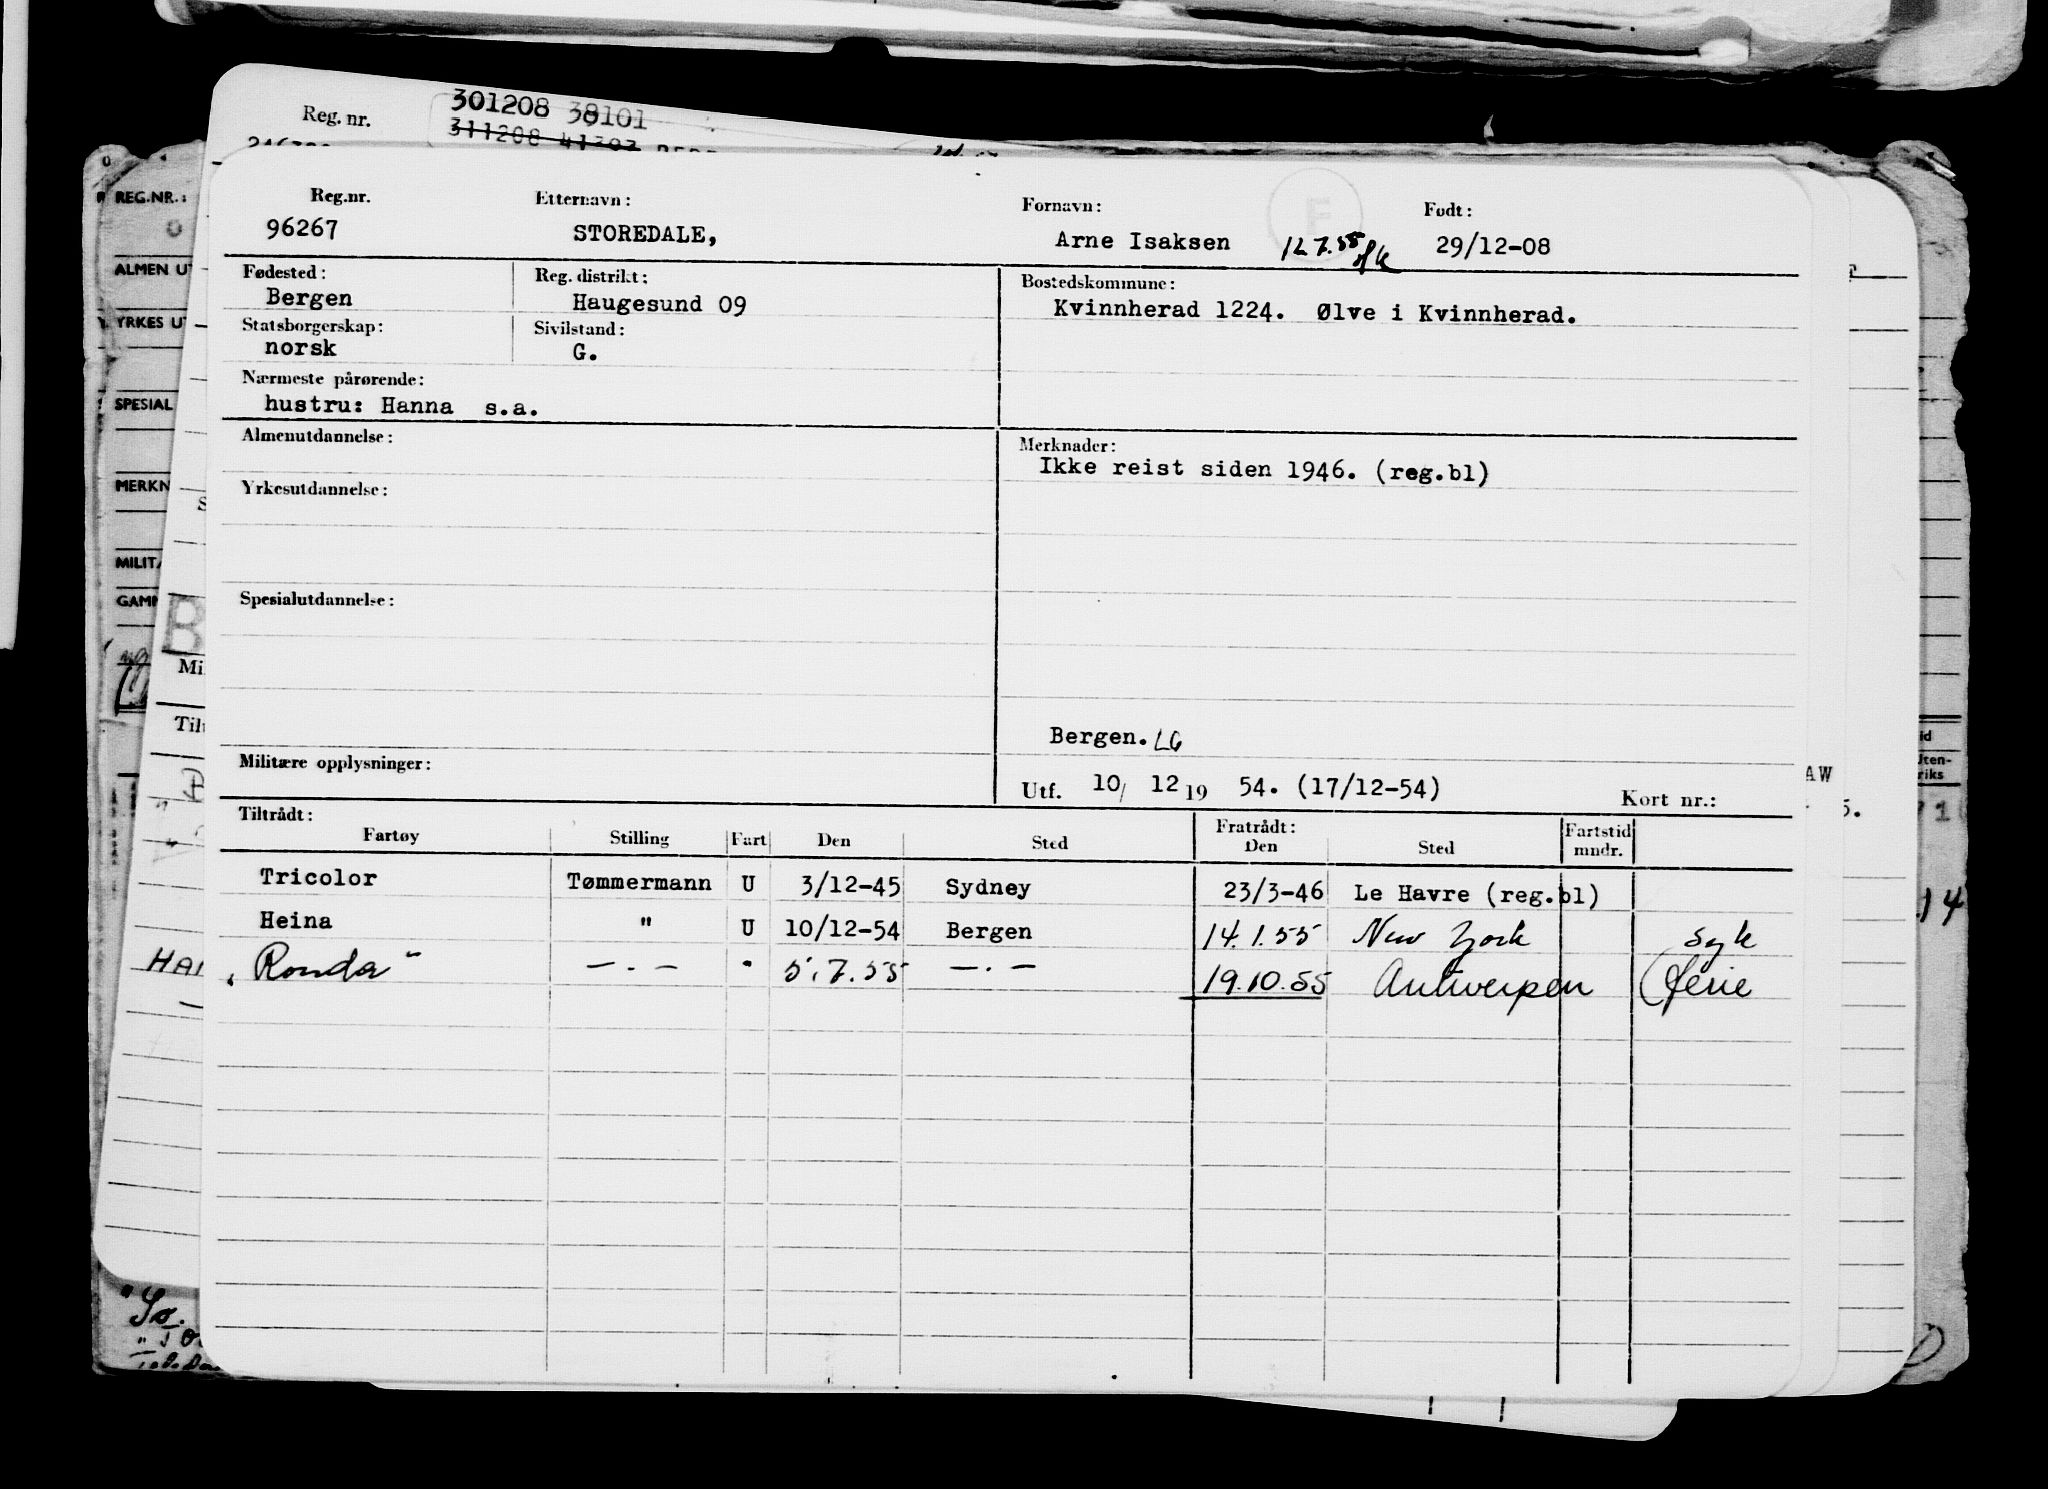 Reg. nr. 301208 38101
311208 41303
REG.NR.:
ALMEN UT
YRKES UT
SPESIAL
MERKN
MILITA
GAMM
Reg.nr. Etternavn: Fornavn: F Født:
96267 STOREDALE, Arne Isaksen 12.7.55 29/12-08
Fødested: Reg. distrikt: Bostedskommune:
Bergen Haugesund 09 Kvinnherad 1224. Ølve i Kvinnherad.
Statsborgerskap: Sivilstand:
norsk G.
Nærmeste pårørende:
hustru: Hanna s.a.
Almenutdannelse: Merknader:
Ikke reist siden 1946. (reg.bl)
Yrkesutdannelse:
Spesialutdannelse:
Bergen. LG
Militære opplysninger: Utf. 10/ 12 19 54. (17/12-54) Kort nr.:
Tiltrådt: Fratrådt: Fartstid
Fartøy Stilling Fart Den Sted Den Sted mndr.
Tricolor Tømmermann U 3/12-45 Sydney 23/3-46 Le Havre (reg.bl)
Heina " U 10/12-54 Bergen 14.1.55 New York syk
"Ronda" —.— " 5.7.55 —.— 19.10.55 Antwerpen (ferie
HAN
Mi
Til
AW
5.
14